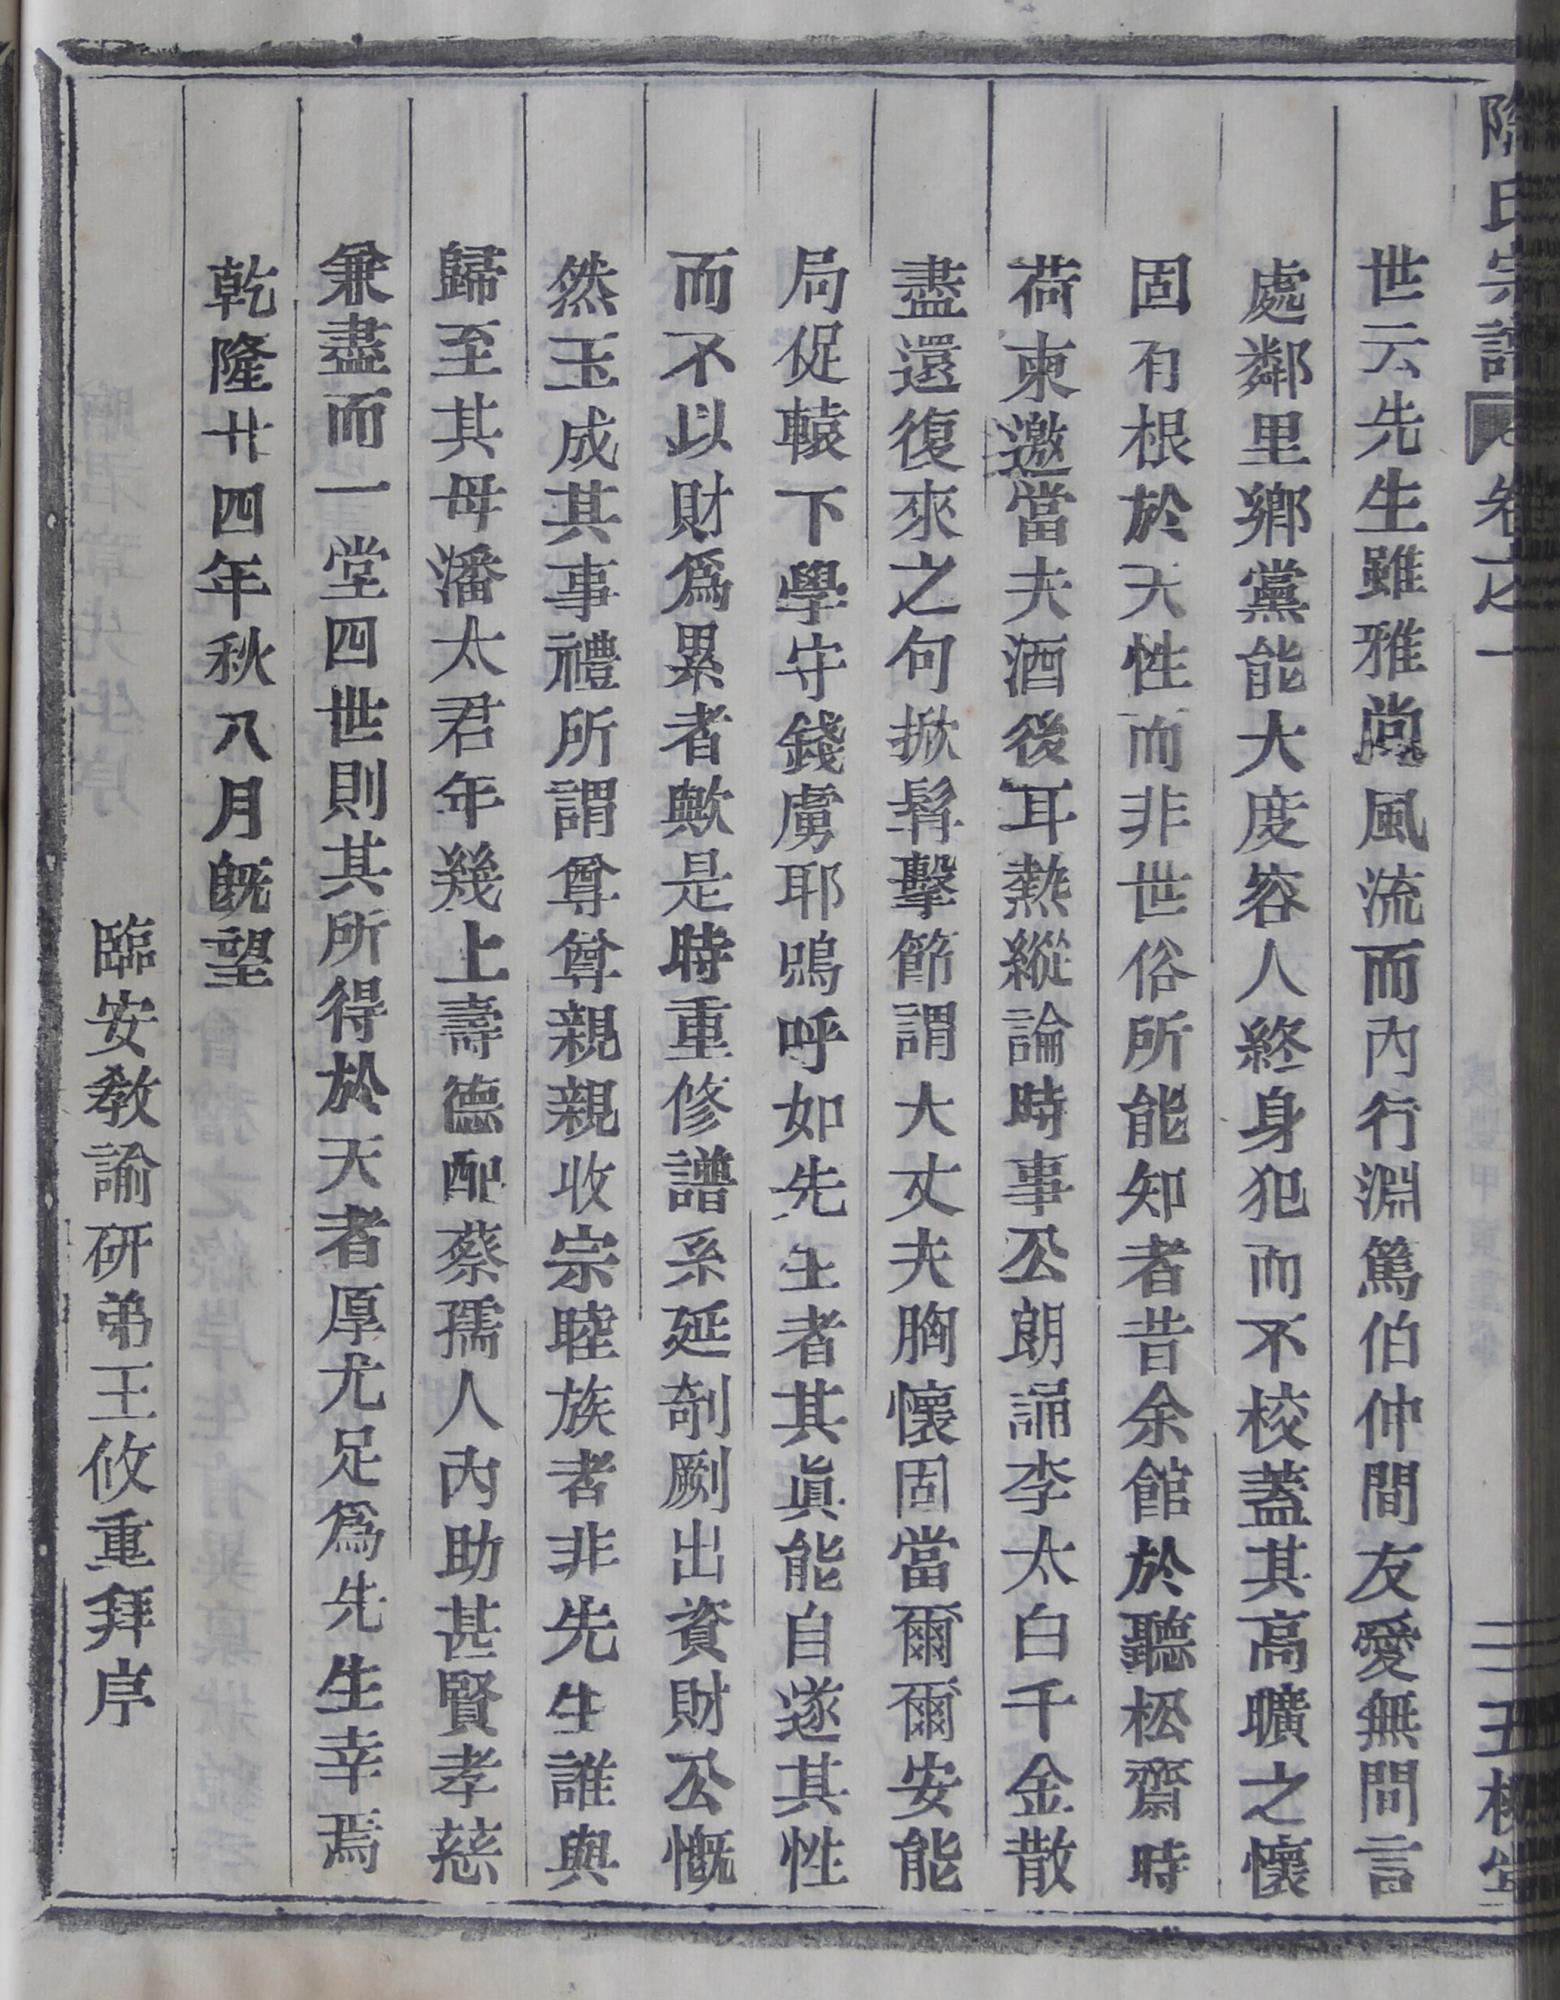 陶氏宗譜 卷之一 二 五柳堂
世云先生雖雅尚風流而內行淵篤伯仲間友愛無間言
處鄰里鄉黨能大度容人終身犯而不校蓋其高曠之懷
固有根於天性而非世俗所能知者昔余館於聽松齋時
荷柬邀當夫酒後耳熱縱論時事公朗誦李太白千金散
盡還復來之句掀髯擊節謂大丈夫胸懷固當爾爾安能
局促轅下學守錢虜耶嗚呼如先生者其眞能自遂其性
而不以財爲累者歟是時重修譜系延剞劂出資財公慨
然玉成其事禮所謂尊尊親親收宗睦族者非先生誰與
歸至其母潘太君年幾上壽德配蔡孺人內助甚賢孝慈
兼盡而一堂四世則其所得於天者厚尤足爲先生幸焉
乾隆廿四年秋八月旣望
臨安敎諭研弟王攸重拜序